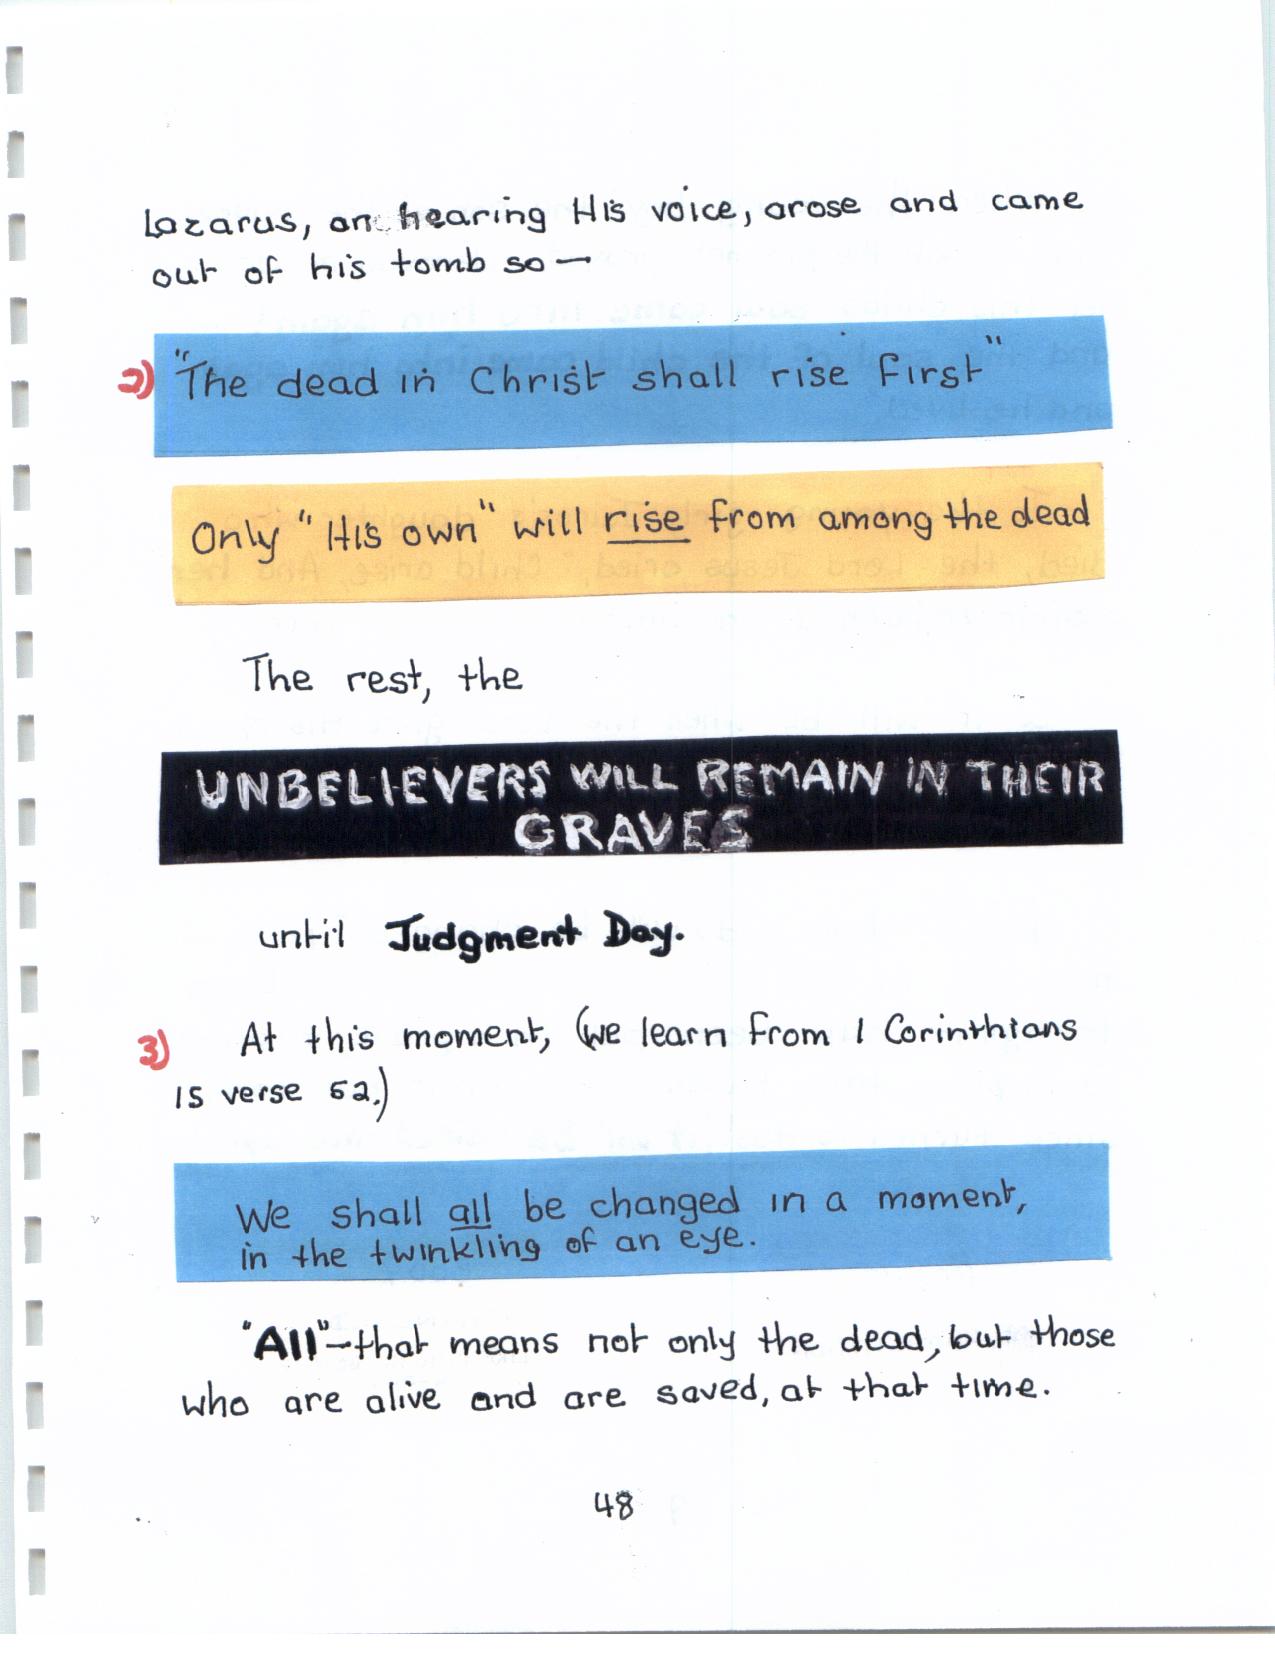 Lazarus, on hearing His voice, arose and came
out of his tomb so —
2) "The dead in Christ shall rise first"
Only "His own" will rise from among the dead
The rest, the
UNBELIEVERS WILL REMAIN IN THEIR
GRAVES
until Judgment Day.
3) At this moment, (we learn from 1 Corinthians
15 verse 52.)
We shall all be changed in a moment,
in the twinkling of an eye.
"All" – that means not only the dead, but those
who are alive and are saved, at that time.
48